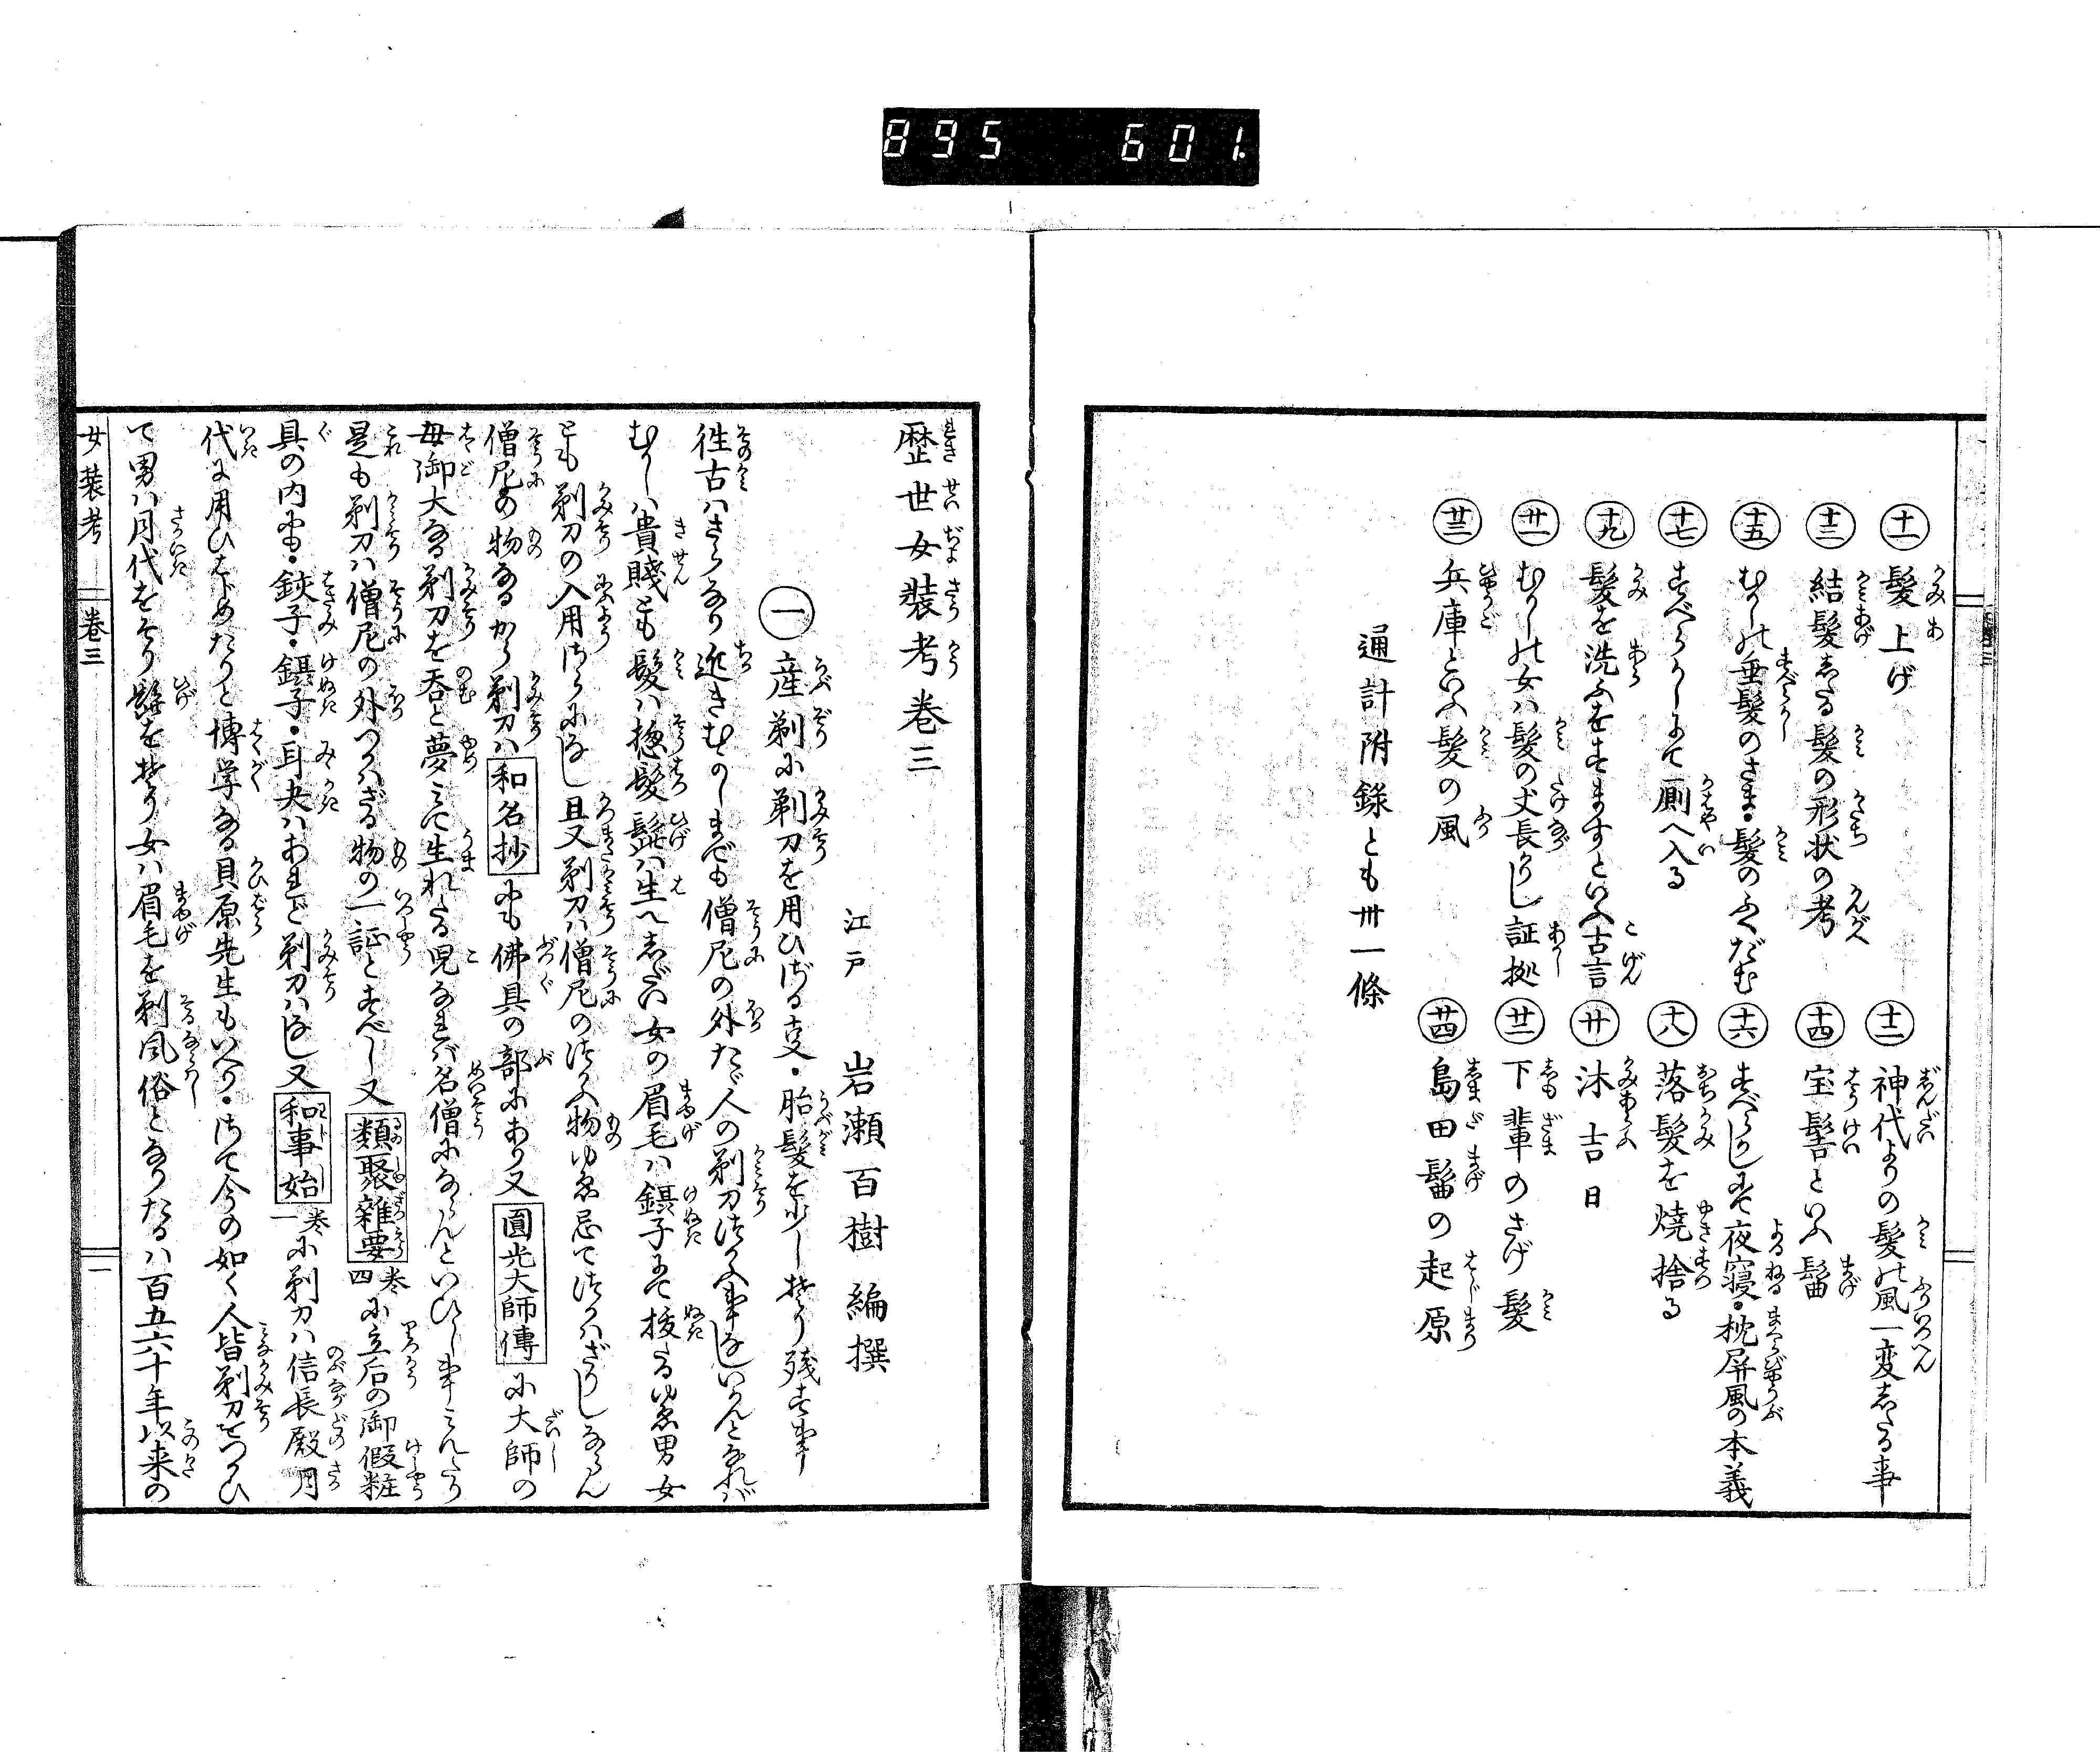 895 601.
十一 髪上げ
十二 神代よりの髪の風一変したる事
十三 結髪したる髪の形状の考
十四 宝髻といふ髷
十五 むかしの垂髪のさま・髪のふくだむ
十六 すべらかしにて夜寝・枕屏風の本義
十七 すべらかしにて厠へ入る
十八 落髪を焼捨る
十九 髪を洗ふをすますといへ古言
廿 沐吉日
廿一 むかしの女は髪の丈長かりし証拠
廿二 下輩のさげ髪
廿三 兵庫といふ髪の風
廿四 島田髷の起原
通計附録とも卅一條
歴世女装考巻三
江戸 岩瀬百樹編撰
一 産剃に剃刀を用ひざる事・胎髪を少し剃り残す事
徃古はさらなり近きむかしまでも僧尼の外たゞ人の剃刀つかふ事なしいかんとなれば
むかしは貴賤とも髪は惣髪髭は生へしだい女の眉毛は鑷子にて抜たるゆゑ男女
とも剃刀の入用さらになし且又剃刀は僧尼のつかふ物ゆゑ忌てつかはざりしならん
僧尼の物なるから剃刀は和名抄にも佛具の部にあり又圓光大師傳に大師の
母御大なる剃刀を呑と夢みて生れたる児なれば名僧にならんといひし事みえたり
是も剃刀は僧尼の外つかはざる物の一証とすべし又類聚雑要巻四に立后の御假粧
具の内にも・鋏子・鑷子・耳夬はあれど剃刀はなし又和事始巻一に剃刀は信長殿月
代に用ひはじめたりと博学なる貝原先生もいへり・さて今の如く人皆剃刀をつかひ
て男は月代をそり髭を剃り女は眉毛を剃風俗となりたるは百五六十年以来の
女装考 巻三 一